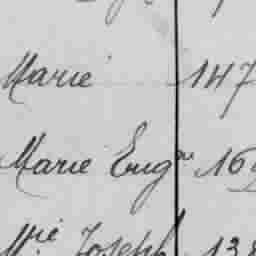 Marie 147
Marie Eugne 169
Mie Joseph 138